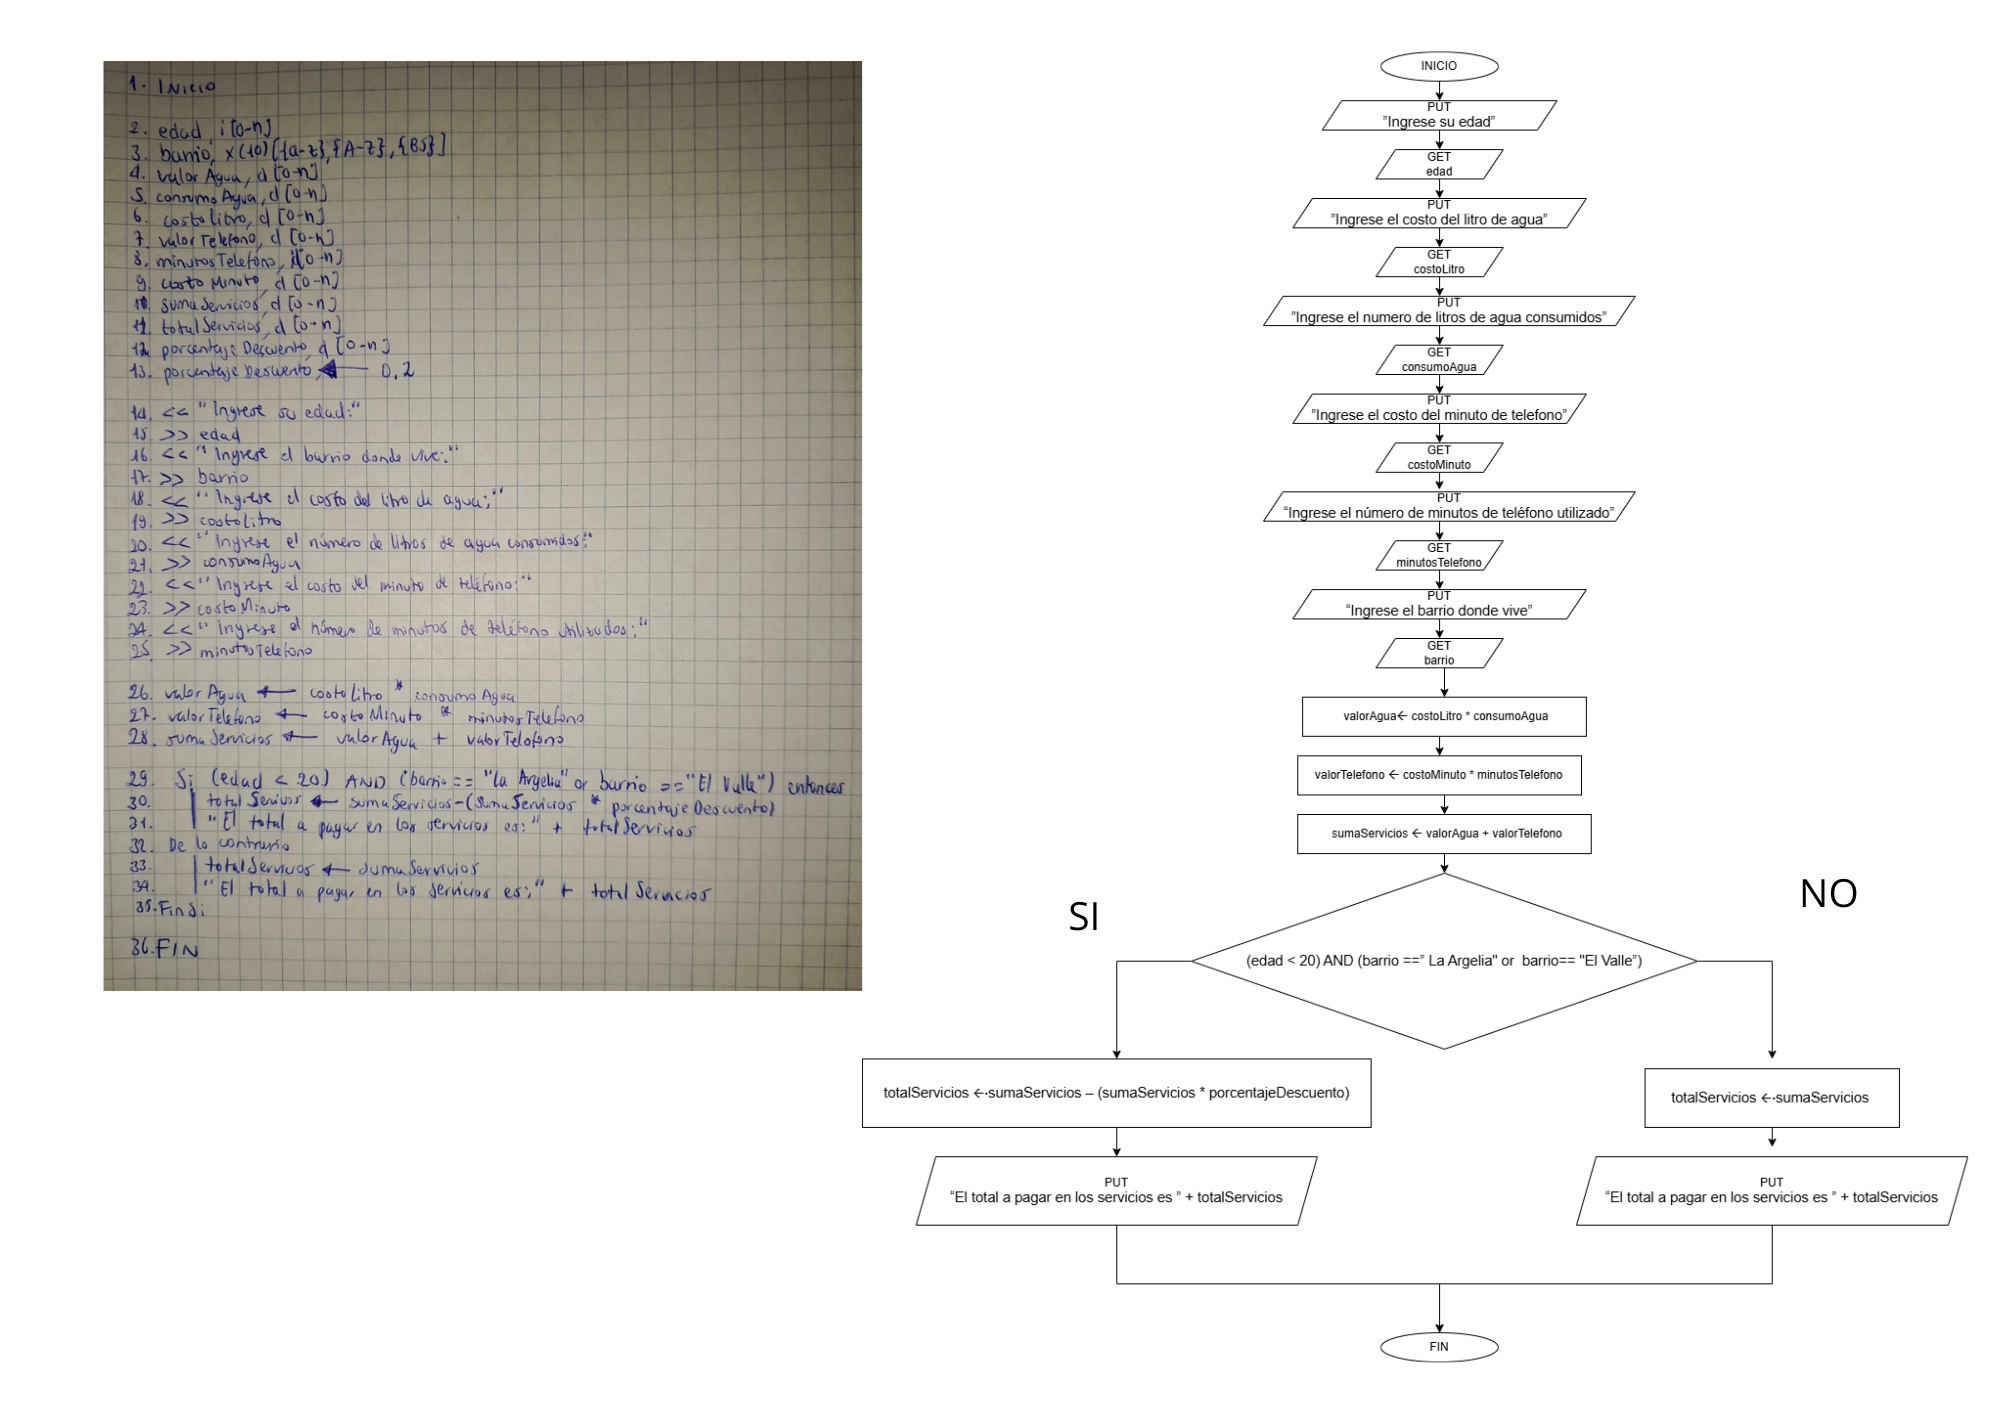 1. INICIO
2. edad, i [0-n]
3. barrio, x(10) [{a-z},{A-Z},{BS}]
4. valorAgua, d [0-n]
5. consumoAgua, d [0-n]
6. costoLitro, d [0-n]
7. valorTelefono, d [0-n]
8. minutosTelefono, i [0-n]
9. costoMinuto, d [0-n]
10. sumaServicios, d [0-n]
11. totalServicios, d [0-n]
12. porcentajeDescuento, d [0-n]
13. porcentajeDescuento, ← 0,2
14. << "Ingrese su edad:"
15. >> edad
16. << "Ingrese el barrio donde vive:"
17. >> barrio
18. << "Ingrese el costo del litro de agua:"
19. >> costoLitro
20. << "Ingrese el número de litros de agua consumidos:"
21. >> consumoAgua
22. << "Ingrese el costo del minuto de teléfono:"
23. >> costoMinuto
24. << "Ingrese el número de minutos de teléfono utilizados:"
25. >> minutosTelefono
26. valorAgua ← costoLitro * consumoAgua
27. valorTelefono ← costoMinuto * minutosTelefono
28. sumaServicios ← valorAgua + valorTelefono
29. Si (edad < 20) AND (barrio == "La Argelia" or barrio == "El Valle") entonces
30. totalServicios ← sumaServicios-(sumaServicios * porcentajeDescuento)
31. "El total a pagar en los servicios es:" + totalServicios
32. De lo contrario
33. totalServicios ← sumaServicios
34. "El total a pagar en los servicios es:" + totalServicios
35. FinSi
36. FIN
INICIO
PUT
"Ingrese su edad"
GET
edad
PUT
"Ingrese el costo del litro de agua"
GET
costoLitro
PUT
"Ingrese el numero de litros de agua consumidos"
GET
consumoAgua
PUT
"Ingrese el costo del minuto de telefono"
GET
costoMinuto
PUT
"Ingrese el número de minutos de teléfono utilizado"
GET
minutosTelefono
PUT
"Ingrese el barrio donde vive"
GET
barrio
valorAgua← costoLitro * consumoAgua
valorTelefono ← costoMinuto * minutosTelefono
sumaServicios ← valorAgua + valorTelefono
SI
NO
(edad < 20) AND (barrio ==" La Argelia" or barrio== "El Valle")
totalServicios ←·sumaServicios – (sumaServicios * porcentajeDescuento)
totalServicios ←·sumaServicios
PUT
"El total a pagar en los servicios es " + totalServicios
PUT
"El total a pagar en los servicios es " + totalServicios
FIN